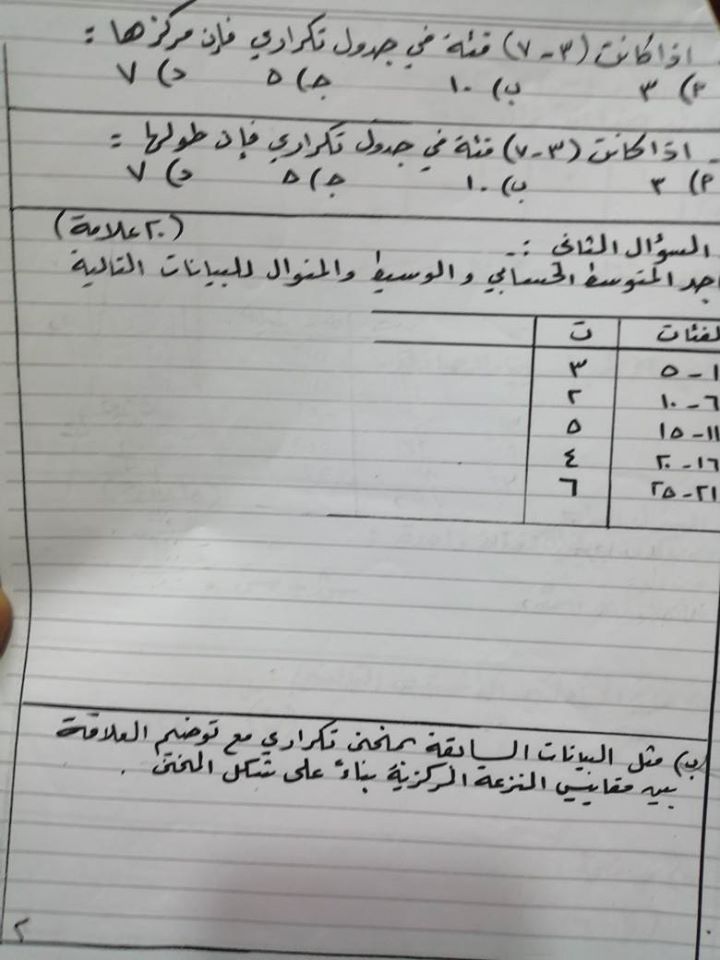 - اذا كانت (٣-٧) فئة في جدول تكراري فإن مركزها :
أ) ٣ ب) ١٠ جـ) ٥ د) ٧
- اذا كانت (٣-٧) فئة في جدول تكراري فإن طولها :
أ) ٣ ب) ١٠ جـ) ٥ د) ٧
السؤال الثاني :- (٢٠ علامة)
اجد المتوسط الحسابي والوسيط والمنوال للبيانات التالية
لفئات ت
١-٥ ٣
٦-١٠ ٢
١١-١٥ ٥
١٦-٢٠ ٤
٢١-٢٥ ٦
ب) مثل البيانات السابقة بمنحنى تكراري مع توضيح العلاقة
بين مقاييس النزعة المركزية بناءً على شكل المنحنى .
٢